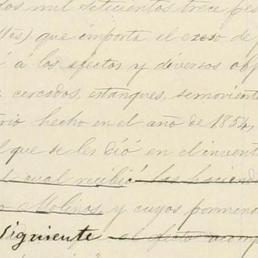 dos mil setecientos trece pes
(les) que importa el exeso de
í a los efectos y diversos obj
cercados, estanques, semovient
rio hecho en el año de 1854,
l que se les dió en el invent
cual recibió las haciend
Molinos, y cuyos pormeno
Siguiente el